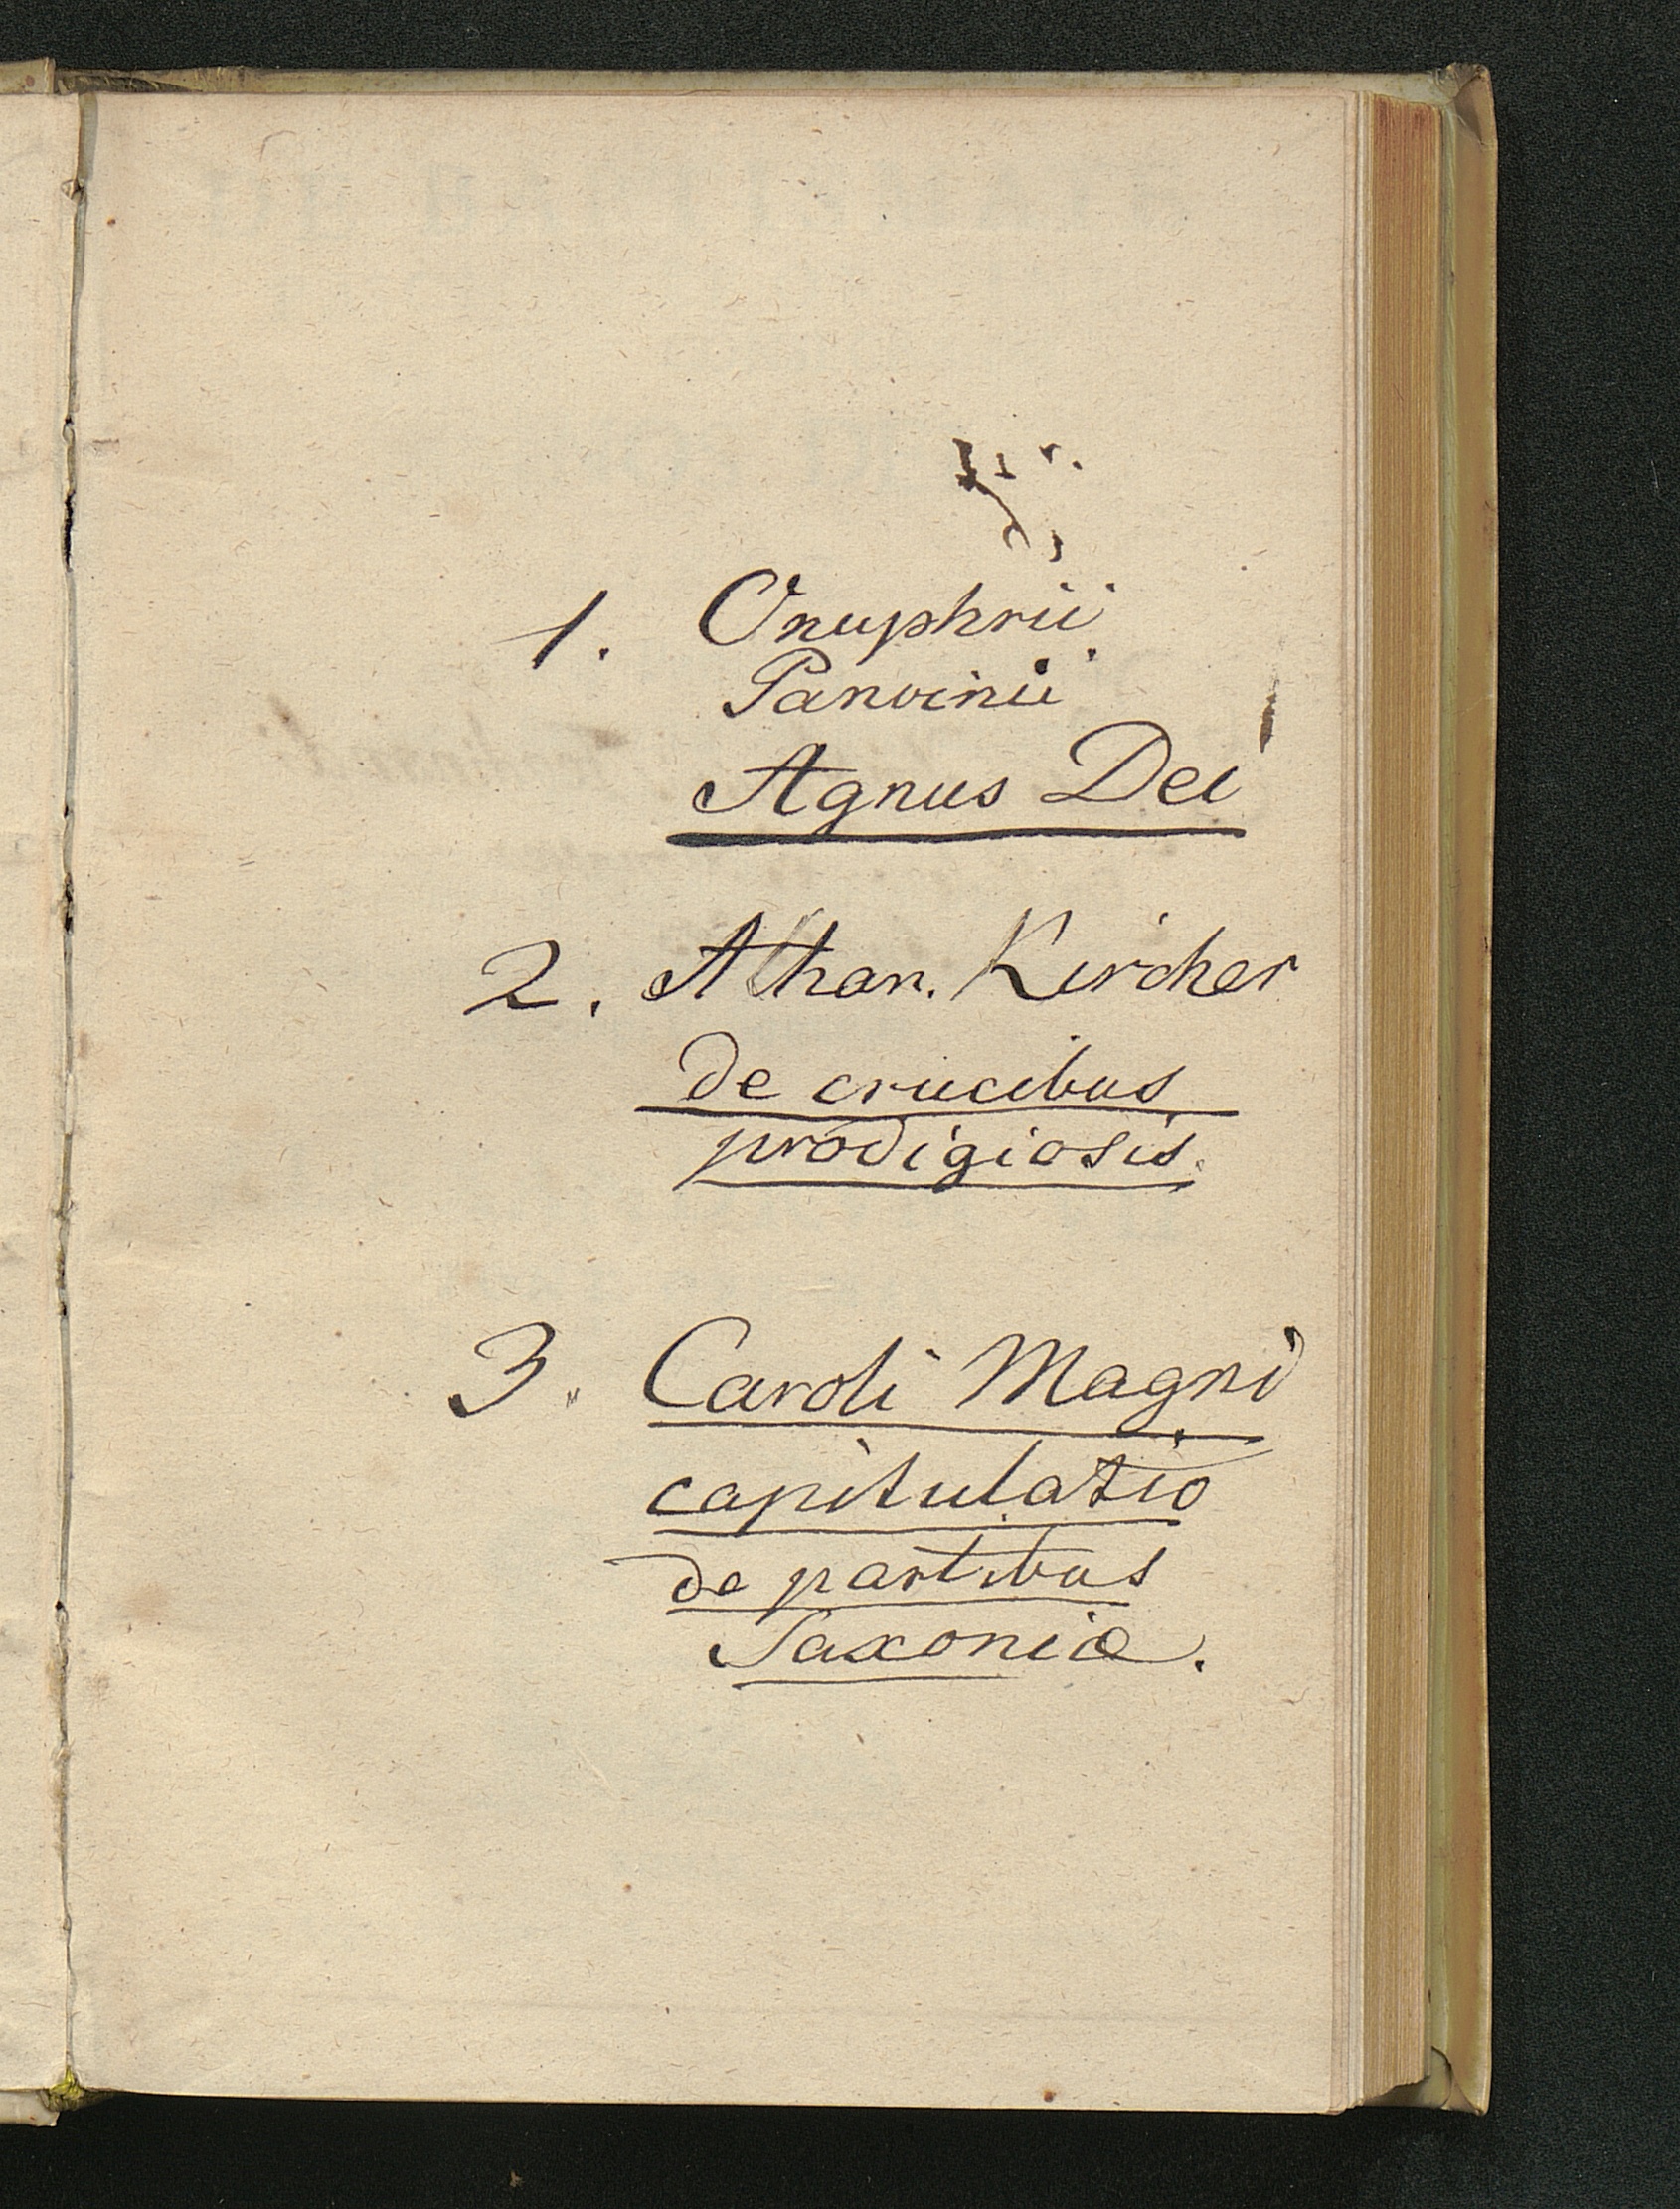 1. Onuphrii
Panvinii
Agnus Dei
2. Athan. Kircher
de crucibus
prodigiosis.
3. Caroli Magni
capitulatio
de partibus
Saxoniæ.